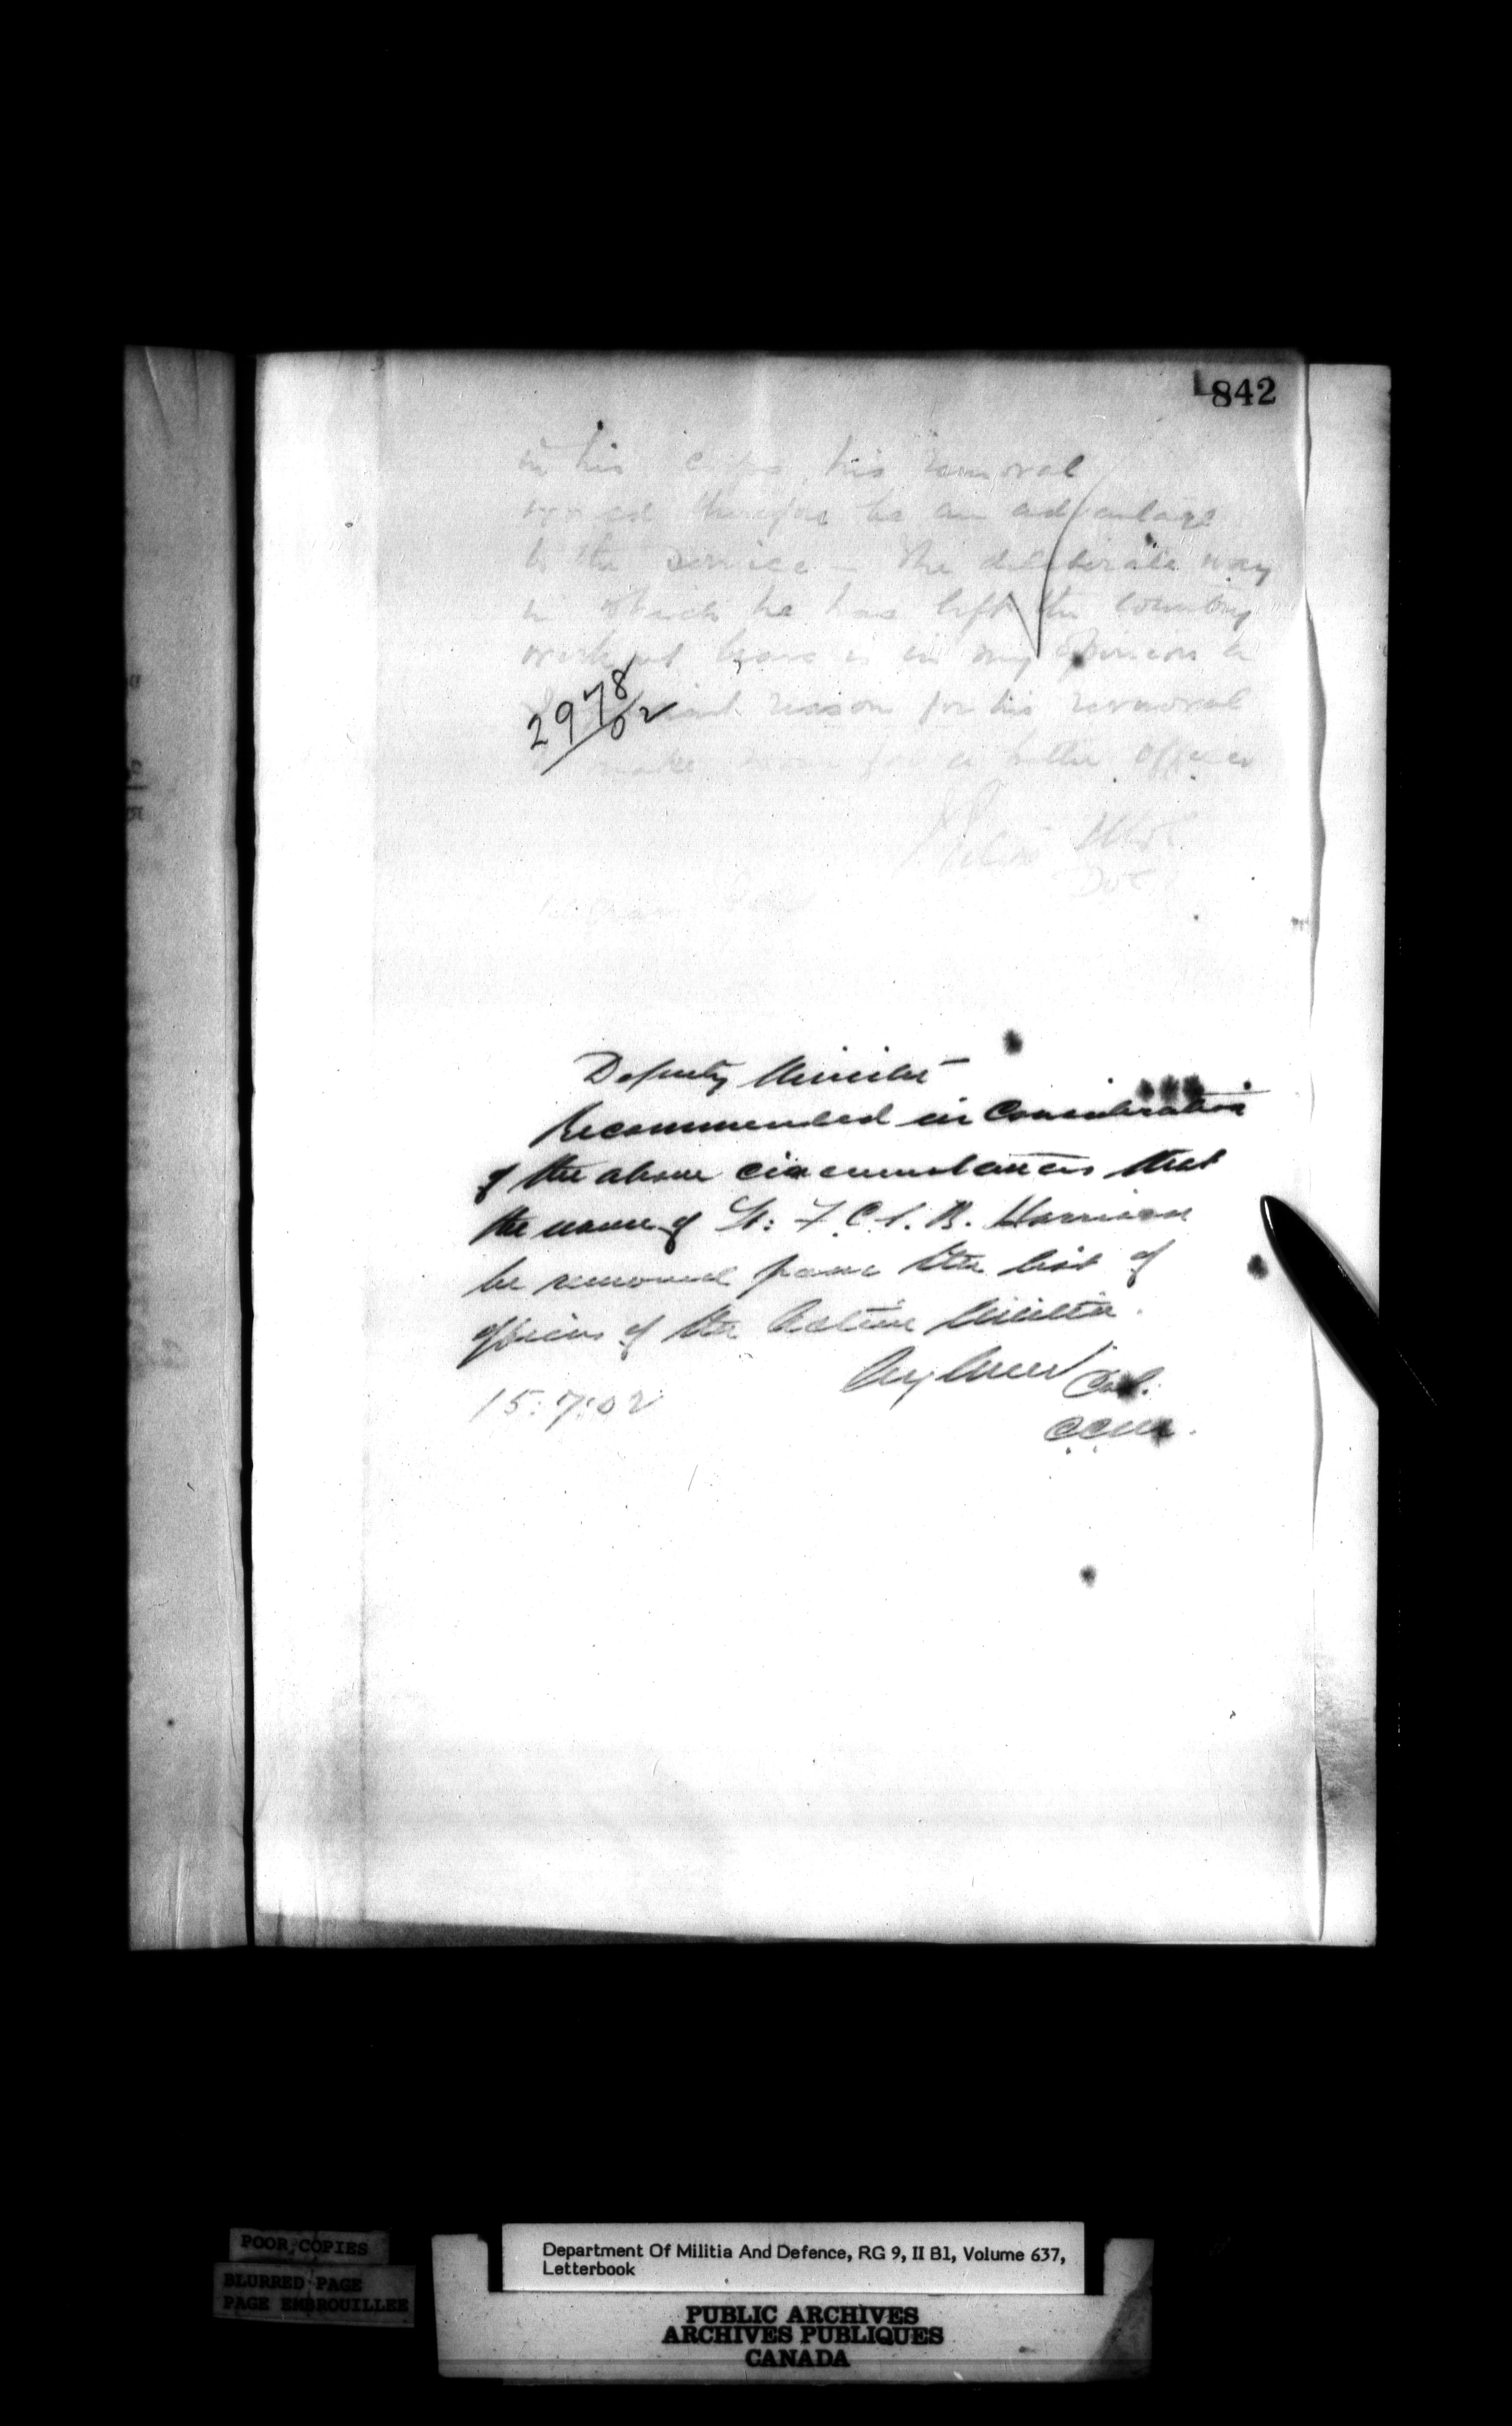 842
in his corps, his removal
would therefore be an advantage
to the service — The deliberate way
in which he has left the country
without leave is in my opinion a
reason for his removal
2978/02
make room for a better officer
D.O.C.
Deputy Minister
Recommended in consideration
of the above circumstances that
the name of Lt: F. C. L. B. Harrison
be removed from the list of
officers of the Active Militia.
Aylmer Col.
15:7:02
POOR COPIES
BLURRED PAGE
PAGE EMBROUILLEE
Department Of Militia And Defence, RG 9, II B1, Volume 637,
Letterbook
PUBLIC ARCHIVES
ARCHIVES PUBLIQUES
CANADA